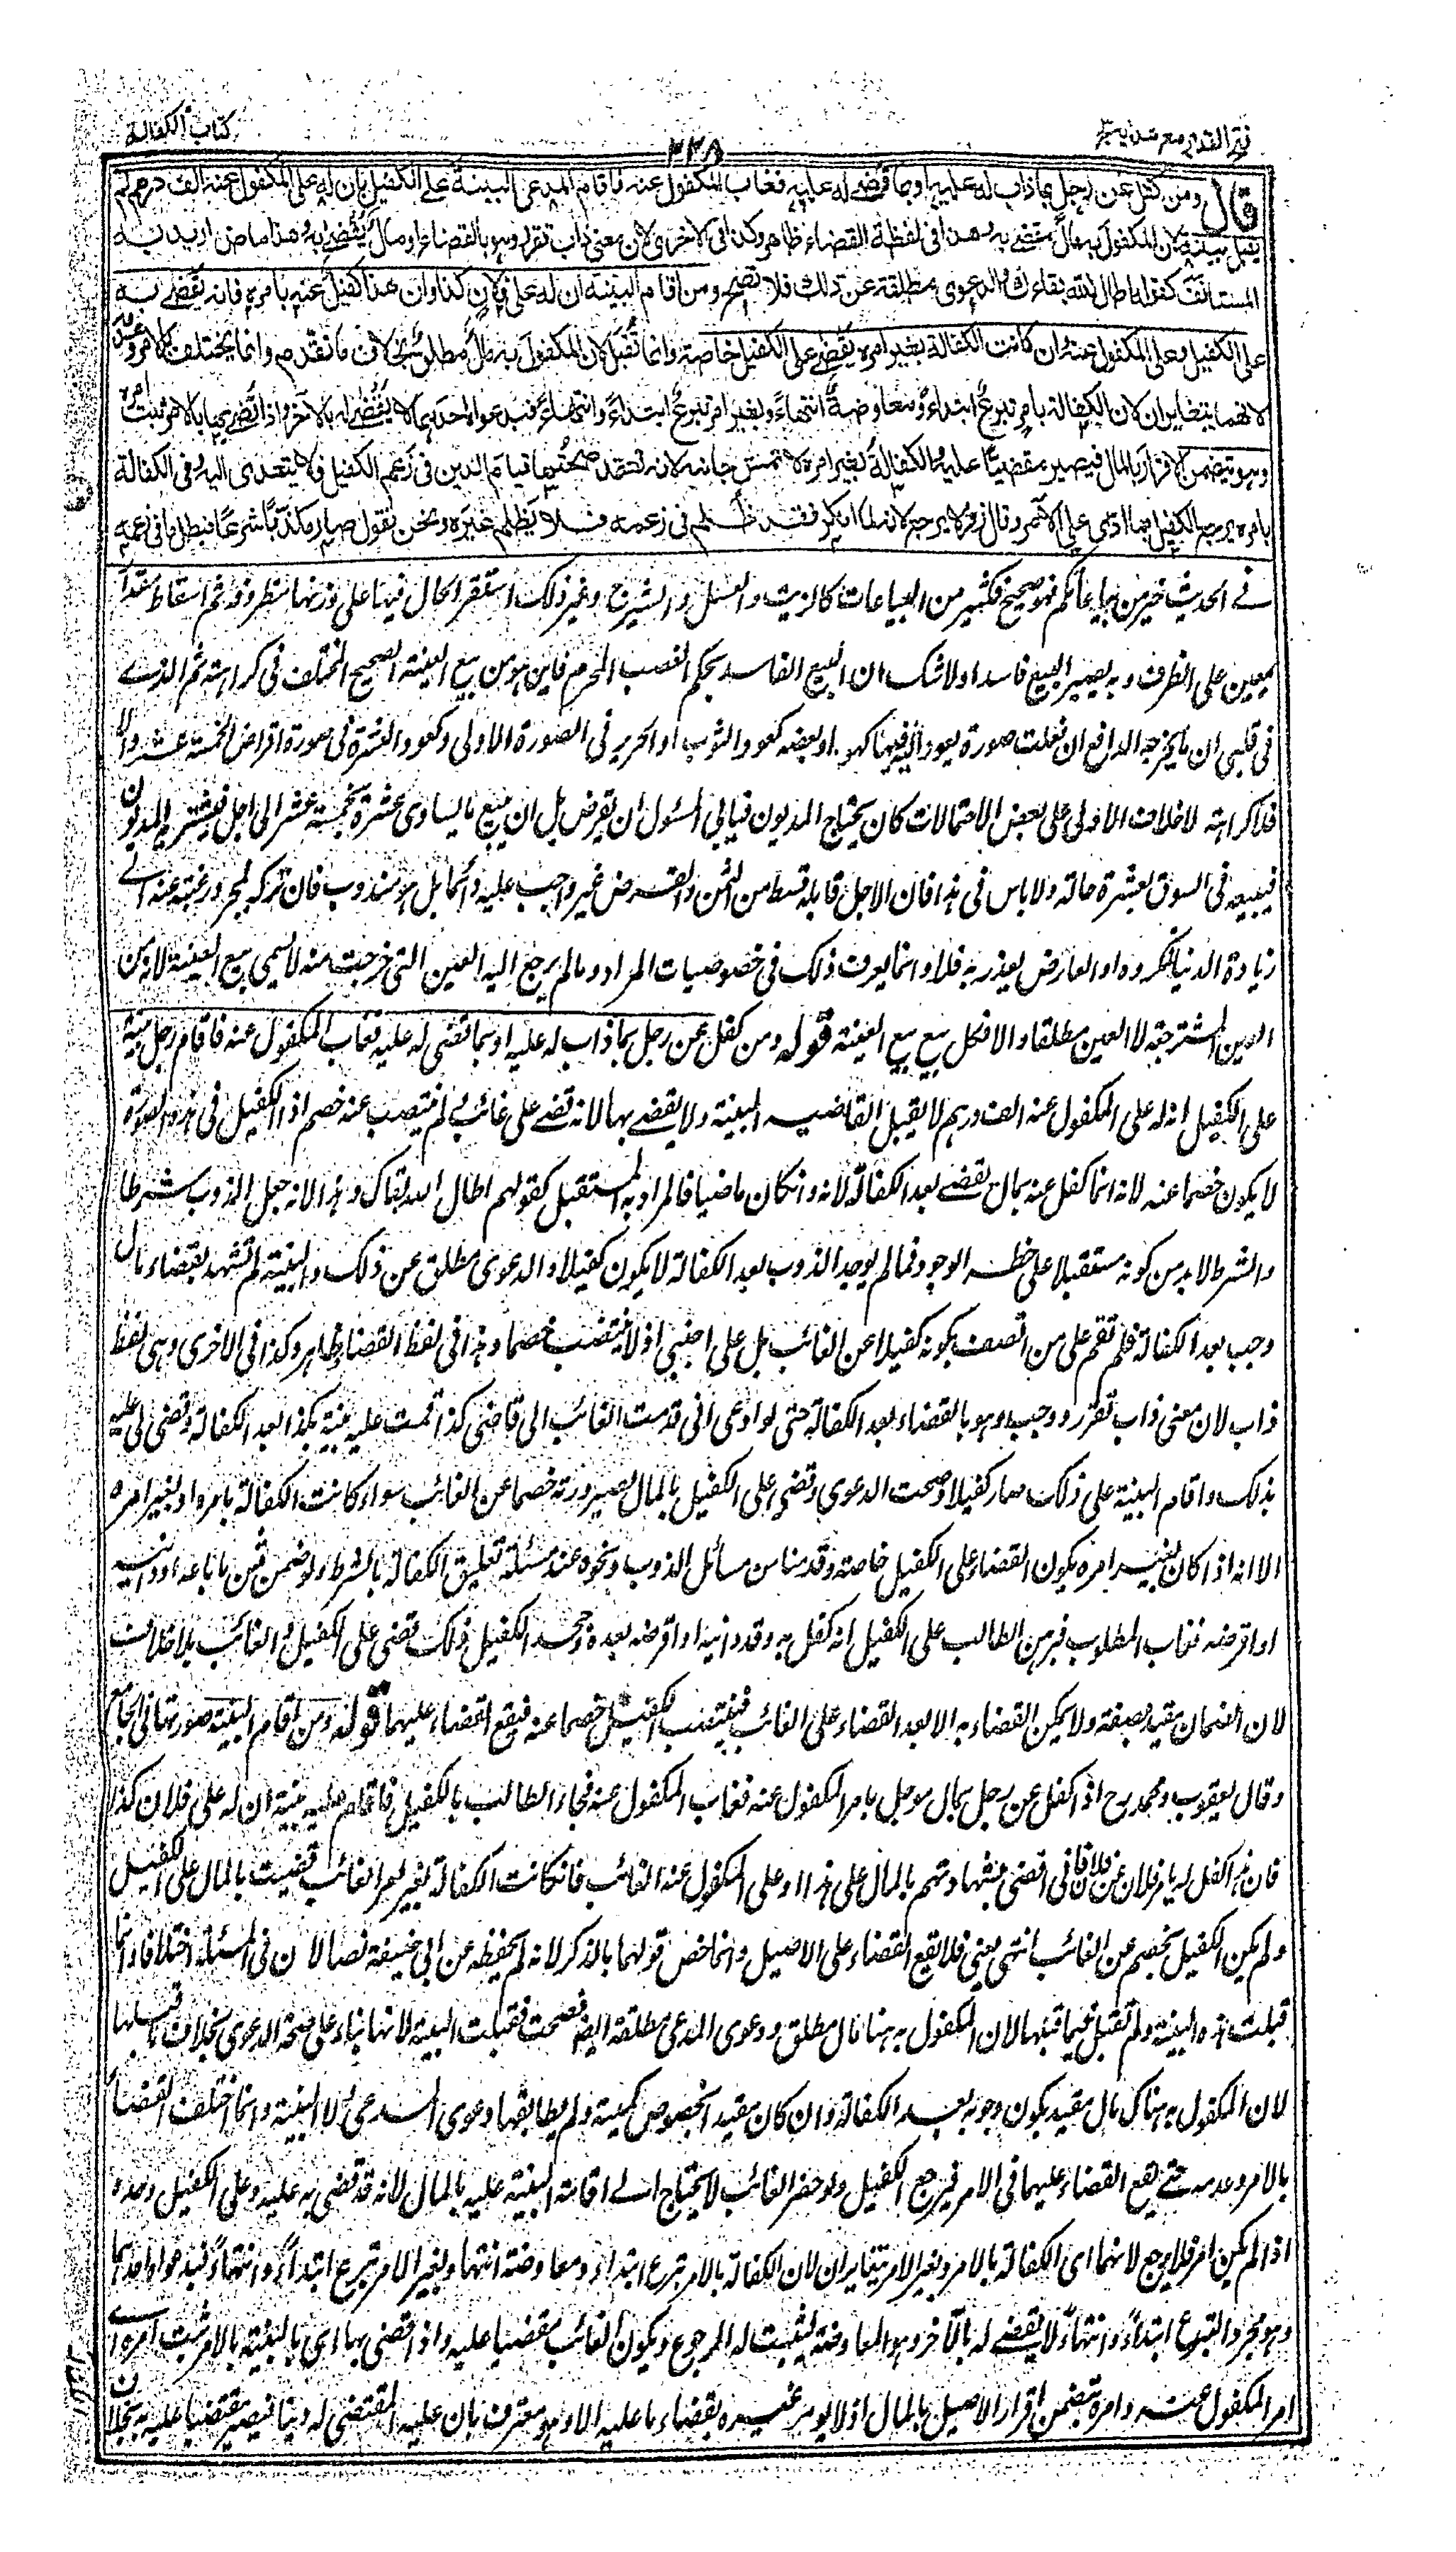 فتح القدير مع هدايه ج٣
٣٣٨
كتاب الكفالة
قال ومن كفل عن رجل بما ذاب له عليه او بما قضے له عليه فغاب المكفول عنه فاقام المدعى البينة على الكفيل بان له على المكفول عنه الف درهم لم
يقبل بينته لان المكفول به مال مقضے به وهذا فى لفظة القضاء ظاهر وكذا فى الاخرى لان معنى ذاب تقرر وهو بالقضاء او مال يقضے به وهذا ماض اريد به
المستانف كقوله اطال الله بقاءك والدعوى مطلقة عن ذلك فلا تصح ومن اقام البينة ان له على فلان كذا وان هذا كفيل عنه بامره فانه يقضے به
على الكفيل وعلى المكفول عنه وان كانت الكفالة بغير امره يقضے على الكفيل خاصة وانما تقبل لان المكفول به مال مطلق بخلاف ما تقدم وانما يختلف بالامر وعدمه
لانهما يتغايران لان الكفالة بامر تبرع ابتداء ومعاوضة انتهاء وبغير امر تبرع ابتداء وانتهاء فبدعواه احدهما لا يقضے له بالآخر واذا قضے بها بالامر ثبت امره
وهو يتضمن الاقرار بالمال فيصير مقضيا عليه والكفالة بغير امره لا تمس جانبه لانه تعتمد صحتها قيام الدين فى زعم الكفيل فلا يتعدى اليه وفى الكفالة
بامره يرجع الكفيل بما ادى على الآمر وقال زفر لا يرجع لانه لما انكر فقد ظلم فى زعمه فلا يظلم غيره ونحن نقول صار مكذبا شرعا فبطل ما فى زعمه
فے الحديث خير من بياعاتكم فهو صحيح فكثير من البياعات كالزيت والعسل والشيرج وغير ذلك استقر الحال فيها على وزنها مظروفة ثم اسقاط مقدار
معين على الظرف وبه يصير البيع فاسدا ولا شك ان البيع الفاسد بحكم الغصب المحرم فاين هو من بيع العينة الصحيح المختلف فى كراهته ثم الذے
فى قلبى ان ما يخرجه الدافع ان فعلت صورة يعود اليه فيها هو او بعضه كعود الثوب او الحرير فى الصورة الاولى وكعود العشرة فى صورة اقراض الخمسة عشر والا
فلا كراهة الا خلاف الاولى على بعض الاحتمالات كان يحتاج المديون فيابى المسئول ان يقرض بل ان يبيع ما يساوى عشرة بخمسة عشر الى اجل فيشتريه المديون
فيبيعه فى السوق بعشرة حالة ولا باس فى هذا فان الاجل قابله قسط من الثمن والقرض غير واجب عليه دائما بل هو مندوب فان تركه لمجرد رغبة عنه الے
زيادة الدنيا فمكروه او لعارض يعذر به فلا وانما يعرف ذلك فى خصوصيات المواد وما لم يرجع اليه العين التى خرجت منه لا يسمى بيع العينة لانه من
العين المسترجعة لا العين مطلقا والا فكل بيع بيع العينة قوله ومن كفل عن رجل بما ذاب له عليه او بما قضى له عليه فغاب المكفول عنه فاقام رجل بينة
على الكفيل انه له على المكفول عنه الف درهم لا يقبل القاضے البينة ولا يقضے بها لانه قضے على غائب لم ينتصب عنه خصم اذ الكفيل فى هذه الصورة
لا يكون خصما عنه لانه انما كفل عنه بمال يقضے بعد الكفالة لانه وان كان ماضيا فالمراد به المستقبل كقولهم اطال الله بقاك وهذا لانه جعل الذوب شرطا
والشرط لا بد من كونه مستقبلا على خطر الوجود فما لم يوجد الذوب بعد الكفالة لا يكون كفيلا والدعوى مطلق عن ذلك والبينة لم تشهد بقضاء مال
وجب بعد الكفالة فلم تقم على من اتصف بكونه كفيلا عن الغائب بل على اجنبى اذ لا ينتصب خصما وهذا فى لفظ القضاء ظاهر وكذا فى الاخرى وهى لفظ
ذاب لان معنى ذاب تقرر ووجب وهو بالقضاء بعد الكفالة حتى لو ادعى انى قدمت الغائب الى قاضى كذا اقمت عليه بينة بكذا بعد الكفالة وقضى لى عليه
بذلك واقام البينة على ذلك صار كفيلا وصحت الدعوى وقضى على الكفيل بالمال لصيرورته خصما عن الغائب سواء كانت الكفالة بامره او بغير امره
الا انه اذا كان بغير امره يكون القضاء على الكفيل خاصة وقد منا من مسائل الذوب ونحوه عند مسئلة تعليق الكفالة بالشرط ولو ضمن ثمن ما باعه او داينه
او اقرضه فغاب المطلوب فبرهن الطالب على الكفيل انه كفل به وقد داينه او اقرضه بعده وجحد الكفيل ذلك قضى على الكفيل والغائب بلا خلاف
لان الضمان مقيد بصفة ولا يمكن القضاء به الا بعد القضاء على الغائب فينتصب الكفيل خصما عنه فيقع القضاء عليهما قوله ومن اقام البينة صورتها فى الجامع
وقال يعقوب ومحمد رح اذا كفل عن رجل بمال موجل بامر المكفول عنه فغاب المكفول عنه فجاء الطالب بالكفيل فاقام عليه بينة ان له على فلان كذا
فان هذا كفل له بامر فلان عن فلان فانى اقضى بشهادتهم بالمال على هذا وعلى المكفول عنه الغائب فان كانت الكفالة بغير امر الغائب قضيت بالمال على الكفيل
ولم يكن الكفيل بخصم عن الغائب انتهى يعنى فلا يقع القضاء على الاصيل وانما خص قولهما بالذكر لانه لم يحفظه عن ابى حنيفة نصا لا ن فى المسئلة اختلافا وانما
قبلت هذه البينة ولم تقبل فيما قبلها لان المكفول به هنا مال مطلق ودعوى المدعى مطلقة ايضا فصحت فقبلت البينة لانها بناء على صحة الدعوى بخلاف ما قبلها
لان المكفول به هناك مال مقيد بكون وجوبه بعد الكفالة وان كان مقيدا بخصوص كمية ولم يطابقها دعوى المدعى ولا البينة وانما اختلف القضاء
بالامر وعدمه حتے يقع القضاء عليهما فى الامر فيرجع الكفيل ولو حضر الغائب لا يحتاج الے اقامة البينة عليه بالمال لانه قد قضى به عليه وعلى الكفيل وحده
اذا لم يكن امر فلا يرجع لانهما اى الكفالة بالامر وبغير الامر يتغايران لان الكفالة بالامر تبرع ابتداء ومعاوضة انتهاء وبغير الامر تبرع ابتداءً وانتهاءً فبدعواه احدهما
وهو مجرد التبرع ابتداءً وانتهاءً لا يقضے له بالآخر وهو المعاوضة ليثبت له الرجوع ويكون الغائب مقضيا عليه واذا قضى بها اى بالبينة بالامر ثبت امره اے
امر المكفول عنه وامره يتضمن اقرار الاصيل بالمال اذ لا يومر غيره بقضاء ما عليه الا وهو معترف بان عليه للمقتضى له دينا فيصير مقضيا عليه به بخلا ن